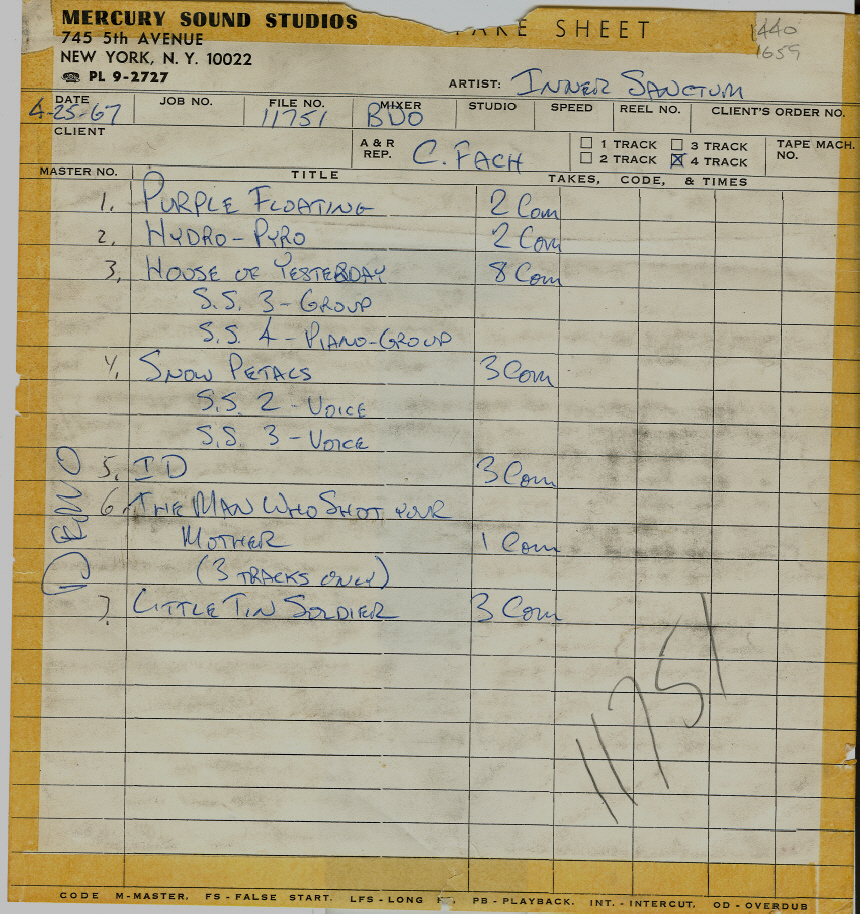 MERCURY SOUND STUDIOS
745 5th AVENUE
NEW YORK, N. Y. 10022
☎ PL 9-2727
TAKE SHEET
1440
1659
ARTIST: INNER SANCTUM
DATE 4-25-67 JOB NO. FILE NO. 11751 MIXER BUO STUDIO SPEED REEL NO. CLIENT'S ORDER NO.
CLIENT A & R REP. C. FACH ☐ 1 TRACK ☐ 3 TRACK ☐ 2 TRACK ☒ 4 TRACK TAPE MACH. NO.
MASTER NO. TITLE TAKES, CODE, & TIMES
1. PURPLE FLOATING 2 Com
2. HYDRO-PYRO 2 Com
3. HOUSE OF YESTERDAY 8 Com
S.S. 3 - GROUP
S.S. 4 - PIANO-GROUP
4. SNOW PETALS 3 Com
S.S. 2 - VOICE
S.S. 3 - VOICE
5. ID 3 Com
6. THE MAN WHO SHOT YOUR
MOTHER 1 Com
(3 TRACKS ONLY)
7. LITTLE TIN SOLDIER 3 Com
DEMO
11751
CODE M-MASTER. FS - FALSE START. LFS - LONG PB - PLAYBACK. INT. - INTERCUT. OD - OVERDUB